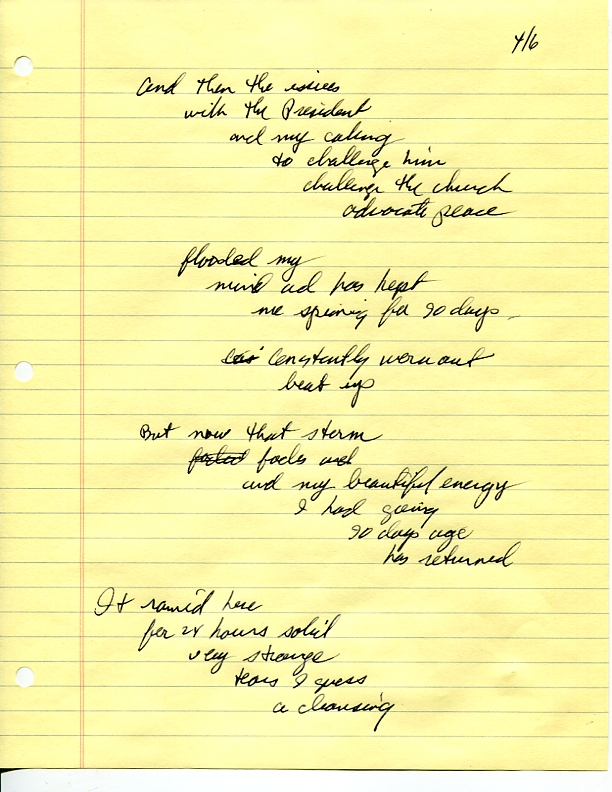 4/6
and then the issues
with the President
and my calling
to challenge him
challenge the church
advocate peace
flooded my
mind ad has kept
me spining for 90 days
constantly worn out
beat up
But now that storm
fades and
and my beautiful energy
I had going
90 days ago
has returned
It rained here
for 24 hours solid
very strange
tears I guess
a cleansing